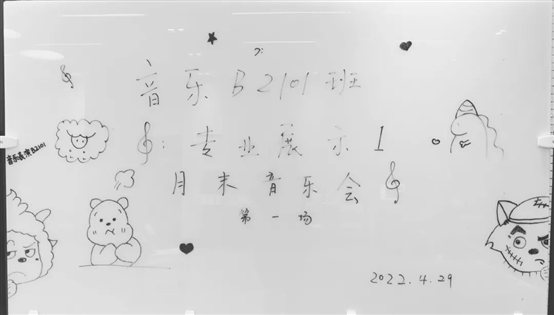 音乐B2101班
专业展示1
月末音乐会
第一场
音乐表演B2101
2022.4.29